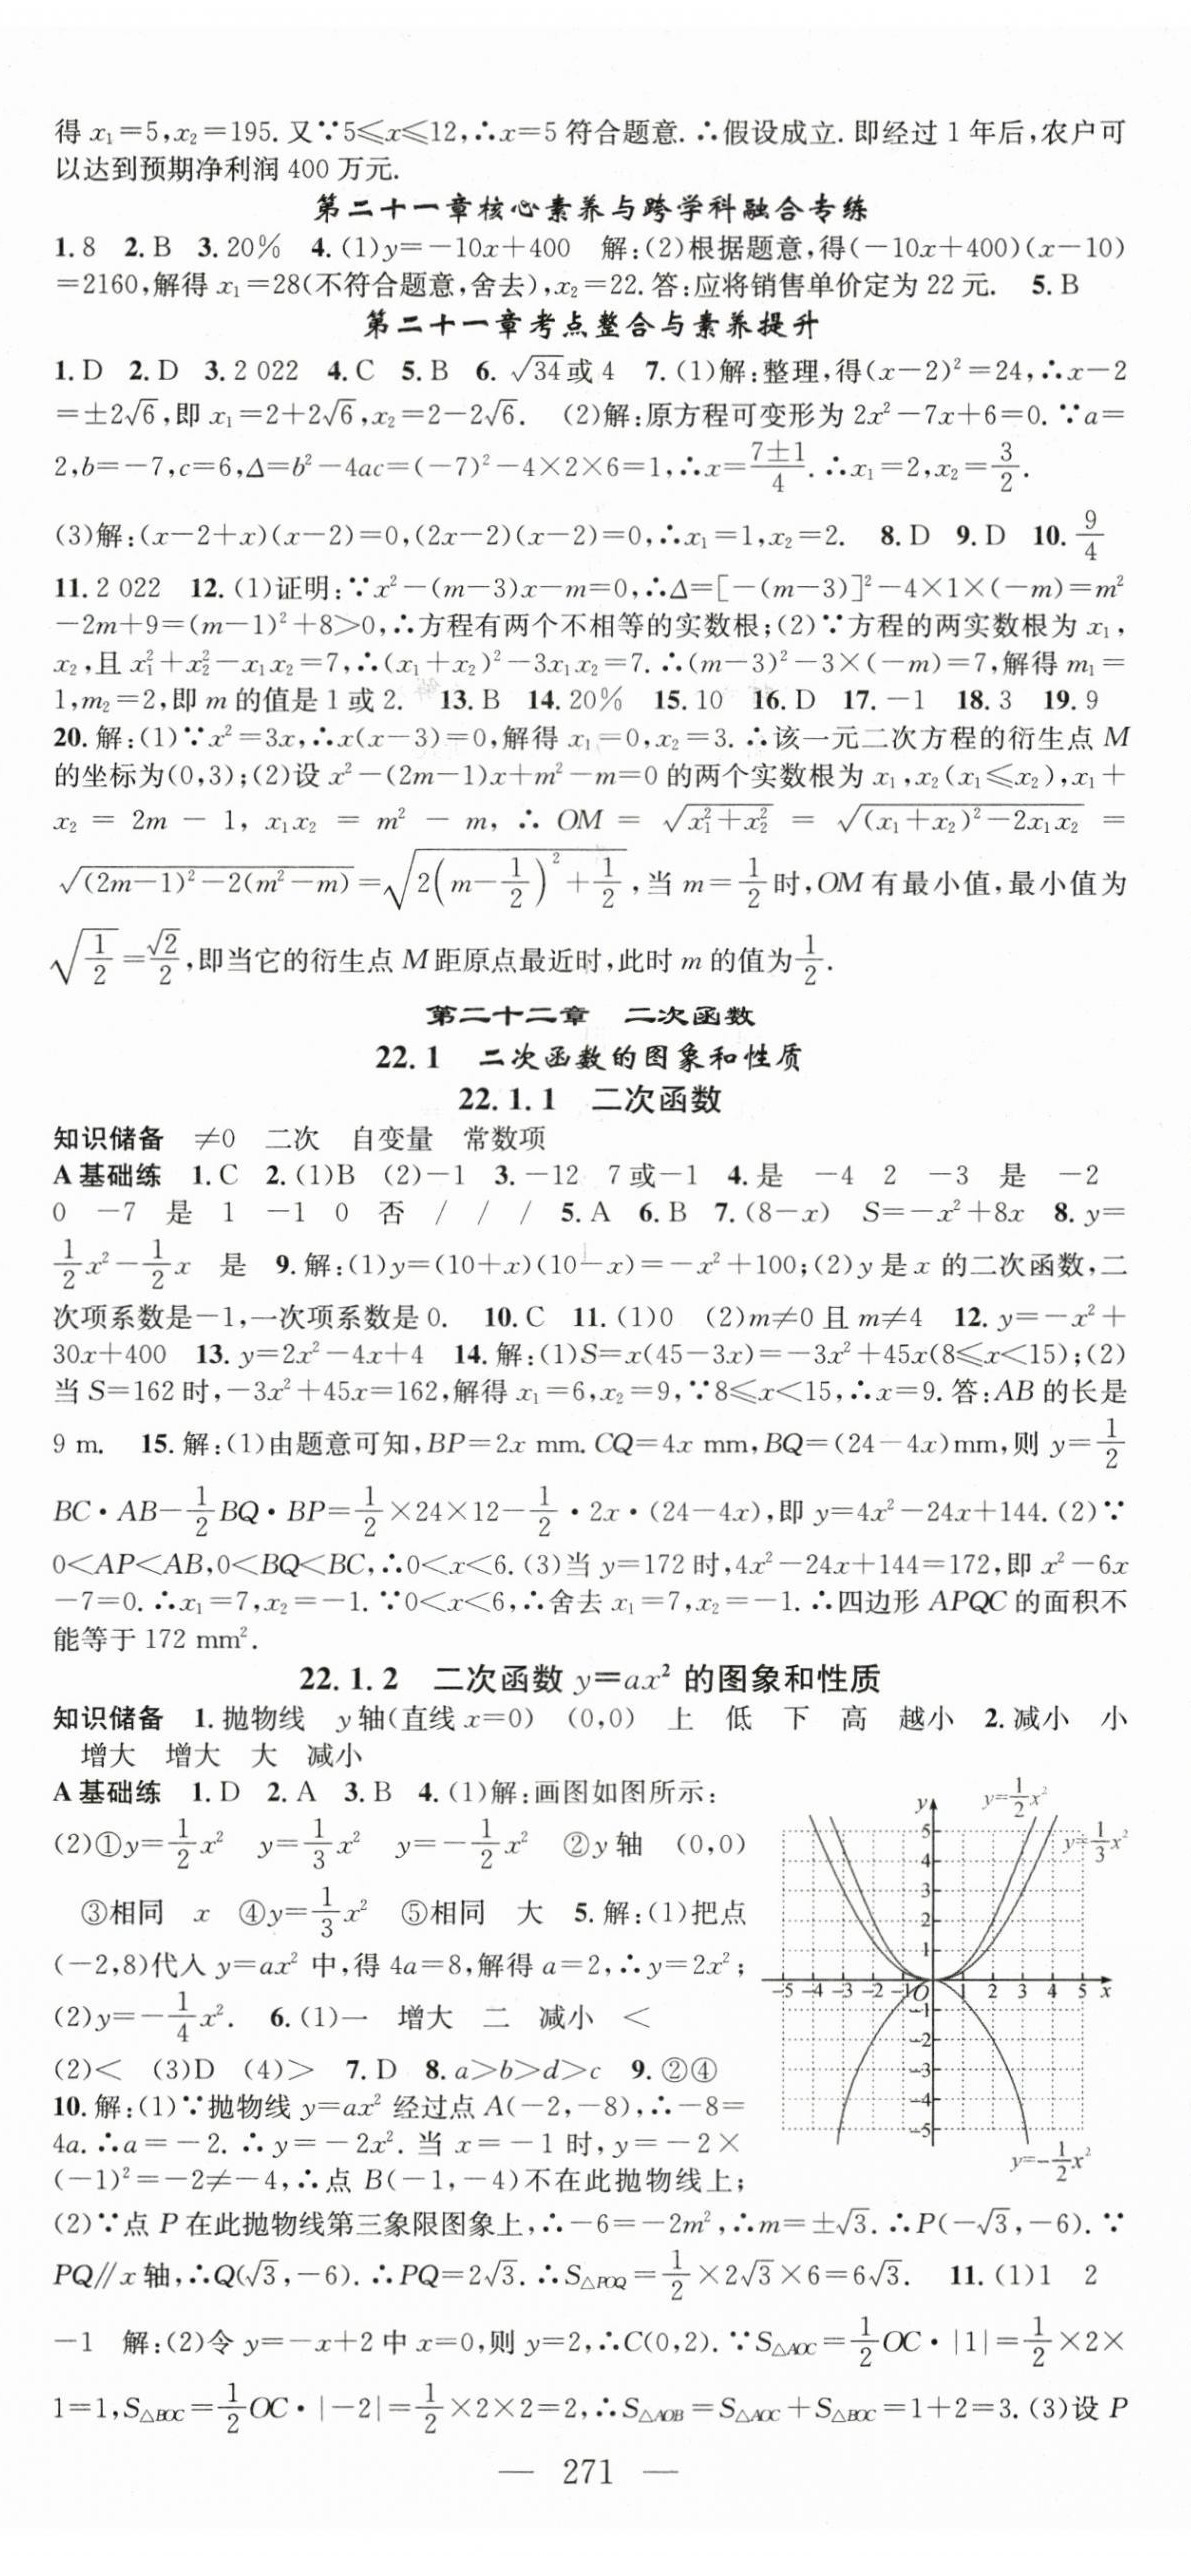 得 x₁=5,x₂=195. 又∵5⩽x⩽12,∴x=5 符合题意. ∴假设成立. 即经过 1 年后,农户可
以达到预期净利润 400 万元.
第二十一章核心素养与跨学科融合专练
1. 8 2. B 3. 20% 4. (1)y=−10x+400 解:(2)根据题意,得(−10x+400)(x−10)
=2160,解得 x₁=28(不符合题意,舍去),x₂=22. 答:应将销售单价定为 22 元. 5. B
第二十一章考点整合与素养提升
1. D 2. D 3. 2 022 4. C 5. B 6. √34或 4 7. (1)解:整理,得(x−2)²=24,∴x−2
=±2√6,即 x₁=2+2√6,x₂=2−2√6. (2)解:原方程可变形为 2x²−7x+6=0. ∵a=
2,b=−7,c=6,Δ=b²−4ac=(−7)²−4×2×6=1,∴x=(7±1)/4. ∴x₁=2,x₂=3/2.
(3)解:(x−2+x)(x−2)=0,(2x−2)(x−2)=0,∴x₁=1,x₂=2. 8. D 9. D 10. 9/4
11. 2 022 12. (1)证明:∵x²−(m−3)x−m=0,∴Δ=[−(m−3)]²−4×1×(−m)=m²
−2m+9=(m−1)²+8>0,∴方程有两个不相等的实数根;(2)∵方程的两实数根为 x₁,
x₂,且 x₁²+x₂²−x₁x₂=7,∴(x₁+x₂)²−3x₁x₂=7. ∴(m−3)²−3×(−m)=7,解得 m₁=
1,m₂=2,即 m 的值是 1 或 2. 13. B 14. 20% 15. 10 16. D 17. −1 18. 3 19. 9
20. 解:(1)∵x²=3x,∴x(x−3)=0,解得 x₁=0,x₂=3. ∴该一元二次方程的衍生点 M
的坐标为(0,3);(2)设 x²−(2m−1)x+m²−m=0 的两个实数根为 x₁,x₂(x₁⩽x₂),x₁+
x₂ = 2m − 1, x₁x₂ = m² − m, ∴ OM = √(x₁²+x₂²) = √((x₁+x₂)²−2x₁x₂) =
√((2m−1)²−2(m²−m)) =√(2(m−1/2)²+1/2),当 m=1/2时,OM 有最小值,最小值为
√(1/2)=√2/2,即当它的衍生点 M 距原点最近时,此时 m 的值为1/2.
第二十二章 二次函数
22.1 二次函数的图象和性质
22.1.1 二次函数
知识储备 ≠0 二次 自变量 常数项
A 基础练 1. C 2. (1)B (2)−1 3. −12 7 或−1 4. 是 −4 2 −3 是 −2
0 −7 是 1 −1 0 否 / / / 5. A 6. B 7. (8−x) S=−x²+8x 8. y=
1/2x²−1/2x 是 9. 解:(1)y=(10+x)(10−x)=−x²+100;(2)y 是 x 的二次函数,二
次项系数是−1,一次项系数是 0. 10. C 11. (1)0 (2)m≠0 且 m≠4 12. y=−x²+
30x+400 13. y=2x²−4x+4 14. 解:(1)S=x(45−3x)=−3x²+45x(8⩽x<15);(2)
当 S=162 时,−3x²+45x=162,解得 x₁=6,x₂=9,∵8⩽x<15,∴x=9. 答:AB 的长是
9 m. 15. 解:(1)由题意可知,BP=2x mm. CQ=4x mm,BQ=(24−4x)mm,则 y=1/2
BC·AB−1/2BQ·BP=1/2×24×12−1/2·2x·(24−4x),即 y=4x²−24x+144. (2)∵
0<AP<AB,0<BQ<BC,∴0<x<6. (3)当 y=172 时,4x²−24x+144=172,即 x²−6x
−7=0. ∴x₁=7,x₂=−1. ∵0<x<6,∴舍去 x₁=7,x₂=−1. ∴四边形 APQC 的面积不
能等于 172 mm².
22.1.2 二次函数 y=ax² 的图象和性质
知识储备 1. 抛物线 y 轴(直线 x=0) (0,0) 上 低 下 高 越小 2. 减小 小
增大 增大 大 减小
A 基础练 1. D 2. A 3. B 4. (1)解:画图如图所示:
(2)①y=1/2x² y=1/3x² y=−1/2x² ②y 轴 (0,0)
③相同 x ④y=1/3x² ⑤相同 大 5. 解:(1)把点
(−2,8)代入 y=ax² 中,得 4a=8,解得 a=2,∴y=2x²;
(2)y=−1/4x². 6. (1)一 增大 二 减小 <
(2)< (3)D (4)> 7. D 8. a>b>d>c 9. ②④
10. 解:(1)∵抛物线 y=ax² 经过点 A(−2,−8),∴−8=
4a. ∴a=−2. ∴y=−2x². 当 x=−1 时,y=−2×
(−1)²=−2≠−4,∴点 B(−1,−4)不在此抛物线上;
y
y=1/2x²
y=1/3x²
5
4
3
2
1
−5 −4 −3 −2 −1 O 1 2 3 4 5 x
−1
−2
−3
−4
−5
y=−1/2x²
(2)∵点 P 在此抛物线第三象限图象上,∴−6=−2m²,∴m=±√3. ∴P(−√3,−6). ∵
PQ∥x 轴,∴Q(√3,−6). ∴PQ=2√3. ∴S△POQ=1/2×2√3×6=6√3. 11. (1)1 2
−1 解:(2)令 y=−x+2 中 x=0,则 y=2,∴C(0,2). ∵S△AOC=1/2OC·|1|=1/2×2×
1=1,S△BOC=1/2OC·|−2|=1/2×2×2=2,∴S△AOB=S△AOC+S△BOC=1+2=3. (3)设 P
— 271 —